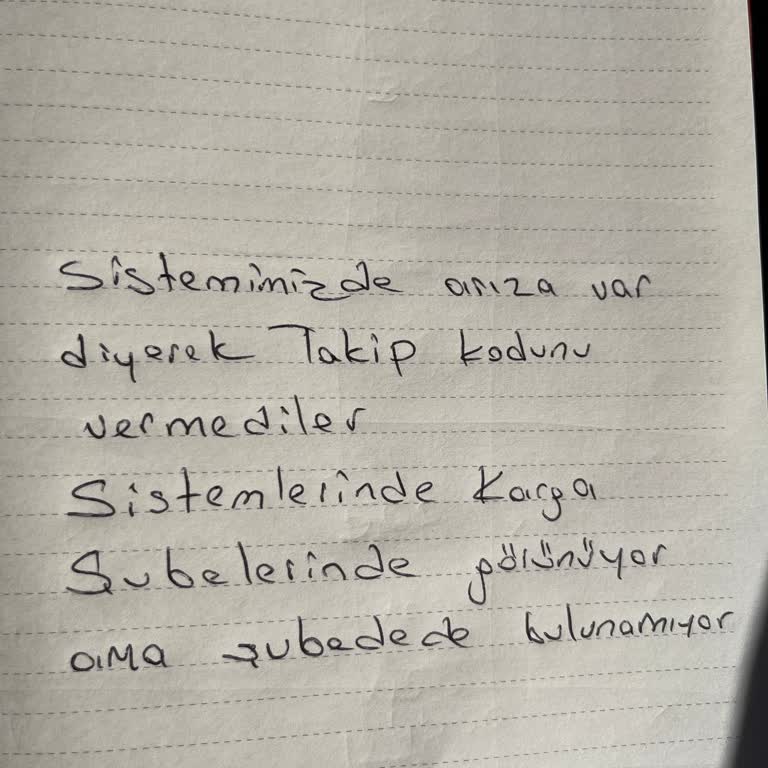 Sisteminizde arıza var
diyerek Takip kodunu
vermediler
Sistemlerinde Kargo
Şubelerinde görünüyor
ama şubedede bulunamıyor